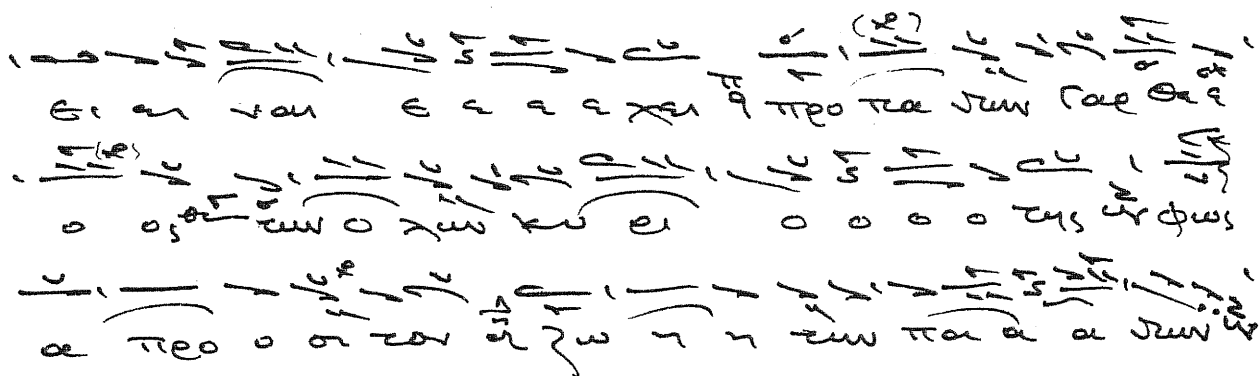 Ει ει ναι ε ε ε ε χει προ πα ντων γαρ Θε ε
ο ος των ο λων κυ ρι ο ο ο ο της φως
α προ ο σι τον η ζω η η των πα α α ντων